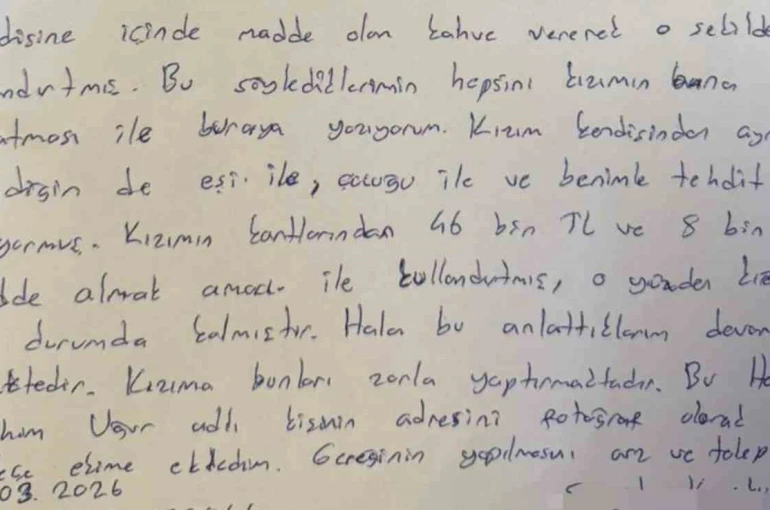 disine içinde madde olan kahve vererek o şekilde
ndırtmış. Bu söylediklerimin hepsini kızımın bana
atması ile buraya yazıyorum. Kızım kendisinden ayr
diğin de eşi ile, çocuğu ile ve benimle tehdit
yormuş. Kızımın kartlarından 46 bin TL ve 8 bin
dde almak amacı ile kullandırtmış, o yüzden kız
durumda kalmıştır. Hala bu anlattıklarım devam
ktedir. Kızıma bunları zorla yaptırmaktadır. Bu
him Uğur adlı kişinin adresini fotoğraf olarak
ekime ekledim. Gereğinin yapılmasını arz ve talep
03. 2026